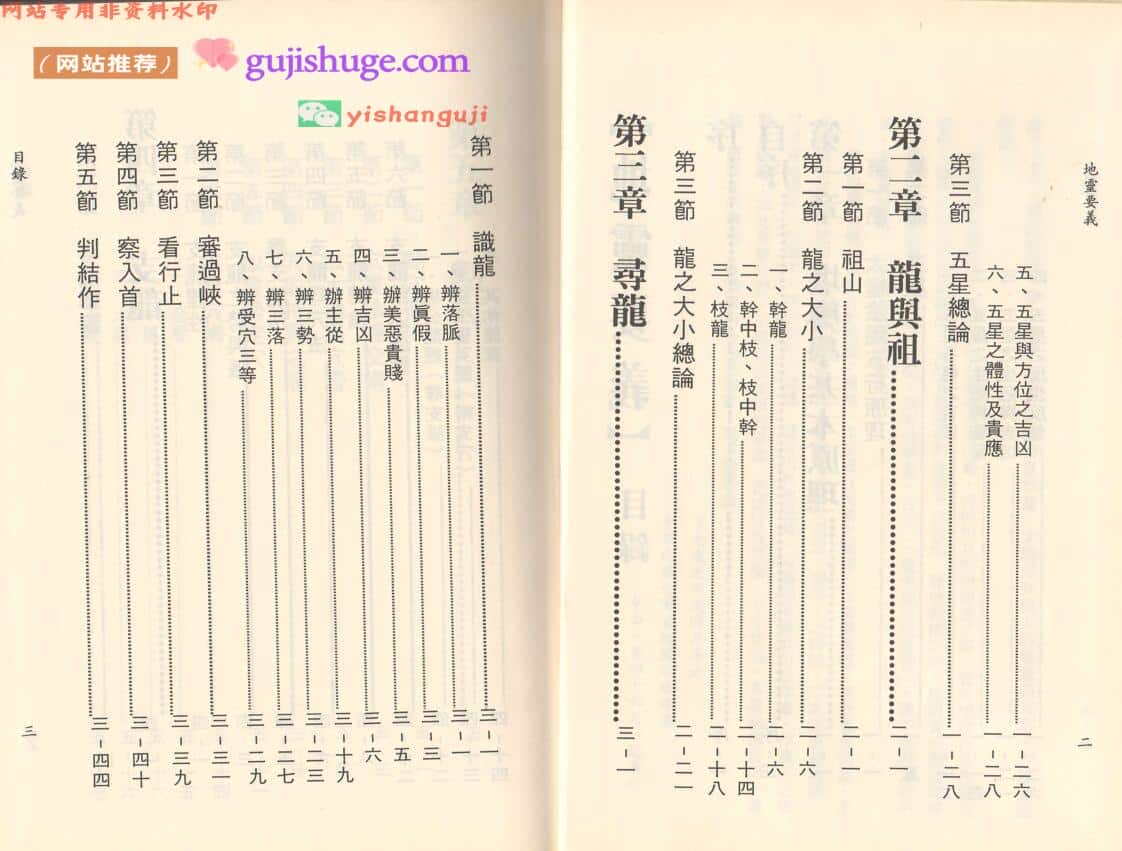 网站专用非资料水印
（网站推荐）
gujishuge.com
yishanguji
地靈要義
五、五星與方位之吉凶 一－二六
六、五星之體性及貴應 一－二八
第三節 五星總論 一－二八
第二章 龍與祖 二－一
第一節 祖山 二－一
第二節 龍之大小 二－六
一、幹龍 二－六
二、幹中枝、枝中幹 二－十四
三、枝龍 二－十八
第三節 龍之大小總論 二－二一
第三章 尋龍 三－一
二
第一節 識龍 三－一
一、辨落脈 三－一
二、辨眞假 三－三
三、辦美惡貴賤 三－五
四、辨吉凶 三－六
五、辦主從 三－十九
六、辨三勢 三－二三
七、辨三落 三－二七
八、辨受穴三等 三－二九
第二節 審過峽 三－三一
第三節 看行止 三－三九
第四節 察入首 三－四十
第五節 判結作 三－四四
目錄
三